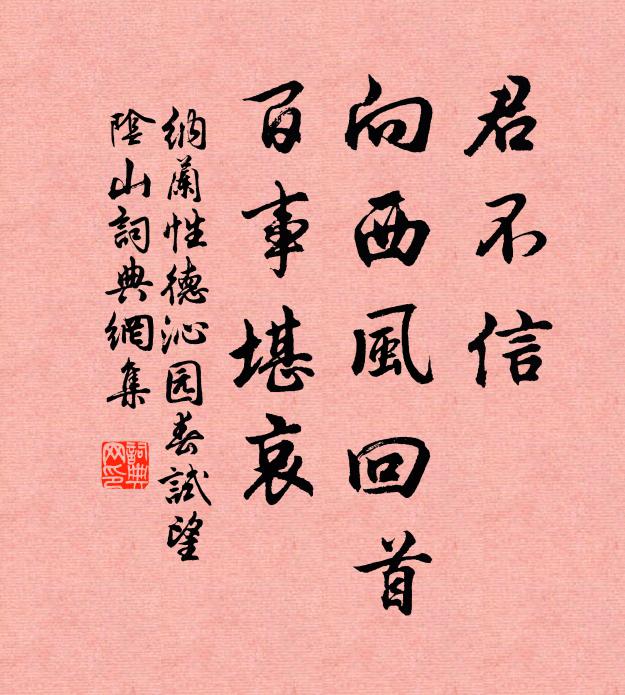 君不信
向西風回首
百事堪哀
納蘭性德沁园春試望
陰山詞典網集
詞典
网印